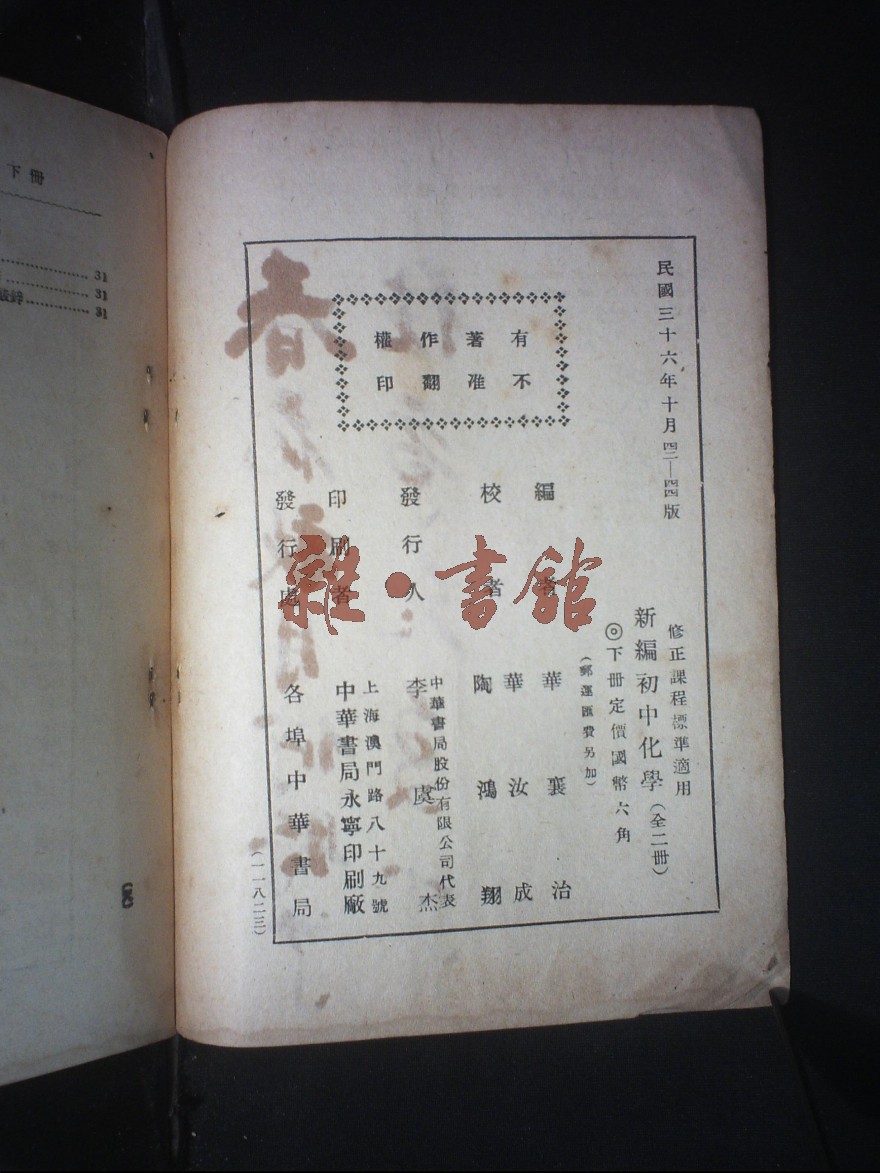 民國三十六年十月四二—四四版
有著作權
不准翻印
修正課程標準適用
新編初中化學(全二冊)
◎下冊定價國幣六角
(郵運匯費另加)
編者 華襄治
華汝成
校者 陶鴻翔
中華書局股份有限公司代表
發行人 李虞杰
上海澳門路八十九號
印刷者 中華書局永寧印刷廠
發行處 各埠中華書局
(一一八二三)
下冊
31
31
31
雜·書館